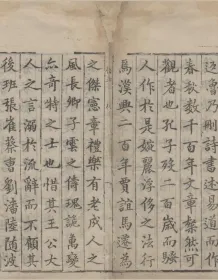 迄魯乃刪詩書述易道而作
春秋數千百年文章粲然可
觀者也孔子歿二百歲而騷
人作於是婉麗浮侈之法行
焉漢興二百年賈誼馬遷為
之傑憲章禮樂有老成人之
風長卿子雲之儔瑰詭萬變
亦奇特之士也惜其王公大
人之言溺於流辭而不顧其
後班張崔蔡曹劉潘陸隨波